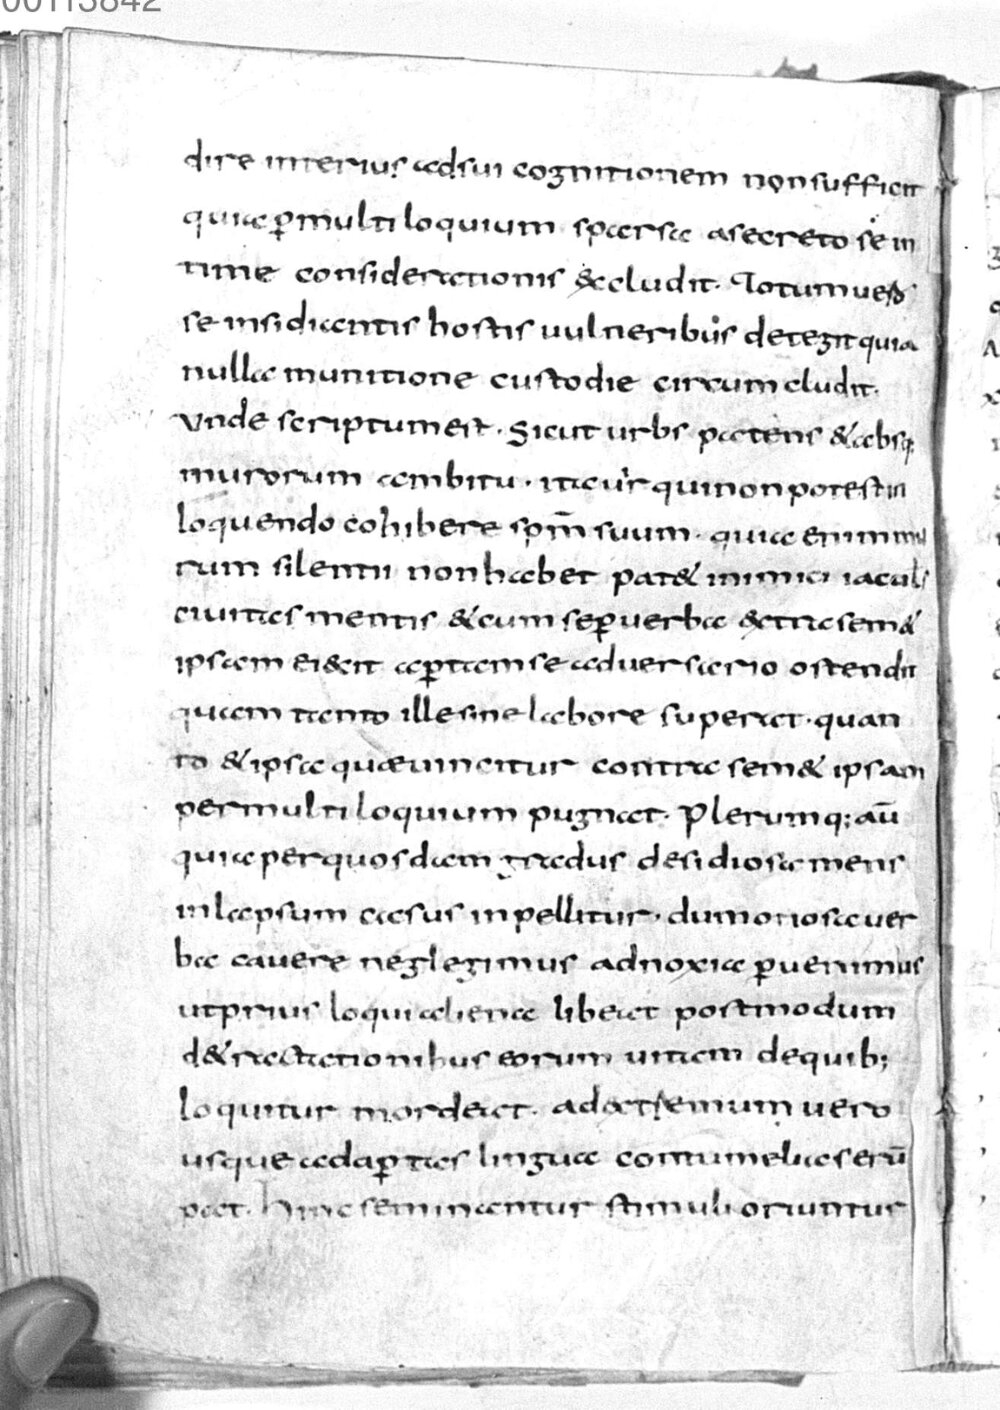 00113842
dire interius adsui cognitionem nonsufficit
quia ꝑmulti loquium sparsa asecreto se in
time considerationis &cludit. Totum uero
se insidiantis hostis uulneribus detegit quia
nulla munitione custodie circumcludit.
Unde scriptum est. Sicut urbs patens & absq;
murorum ambitu. ita uir qui non potest in
loquendo cohibere spm̄ suum. quia enim mu
rum silentii non habet pat& inimici iaculis
ciuitas mentis & cum se ꝑ uerba &tra sem&
ipsam eiecit aꝑtam se aduersario ostendit
quam tanto ille sine labore superat. quan
to & ipsa quae uincitur contra sem& ipsam
per multiloquium pugnat. Plerumq; aū
quia per quosdam gradus desidiosa mens
in lapsum casus inpellitur. dum otiosa uer
ba cauere neglegimus ad noxia ꝑuenimus
ut prius loqui aliena libeat postmodum
d&ractationibus eorum uitam de quib;
loquitur mordeat. ad extremum uero
usque ad aꝑtas linguae contumelias erū
pat. Hinc seminantur stimuli oriuntur